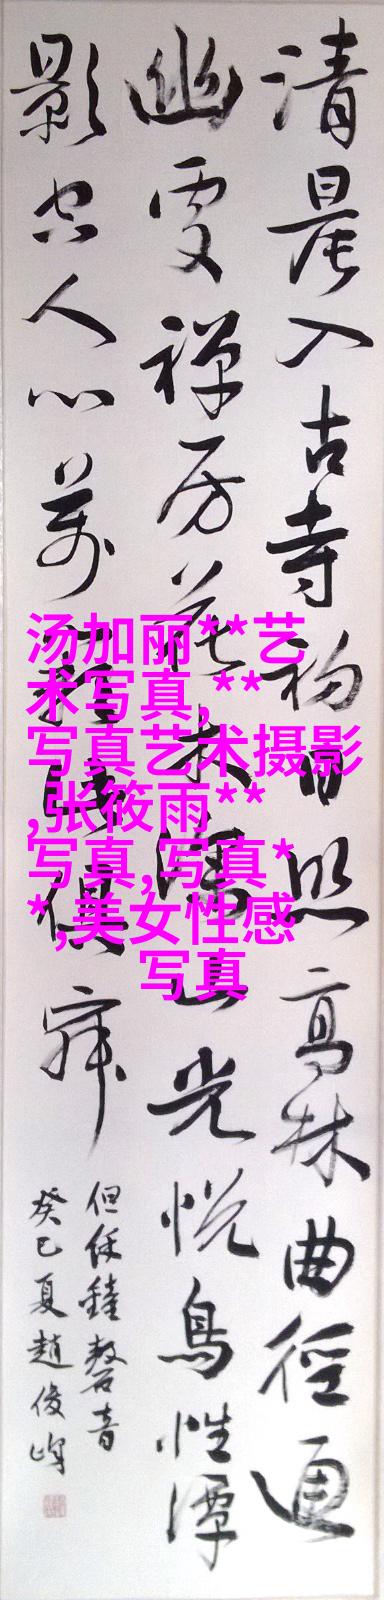 清晨入古寺初日照高林曲徑通
幽處禪房花木深山光悅鳥性潭
影空人心萬籟此俱寂
但餘鐘磬音
癸巳夏趙俊峰
汤加丽**艺
术写真,**
写真艺术摄影
,张筱雨**
写真,写真*
*,美女性感
写真